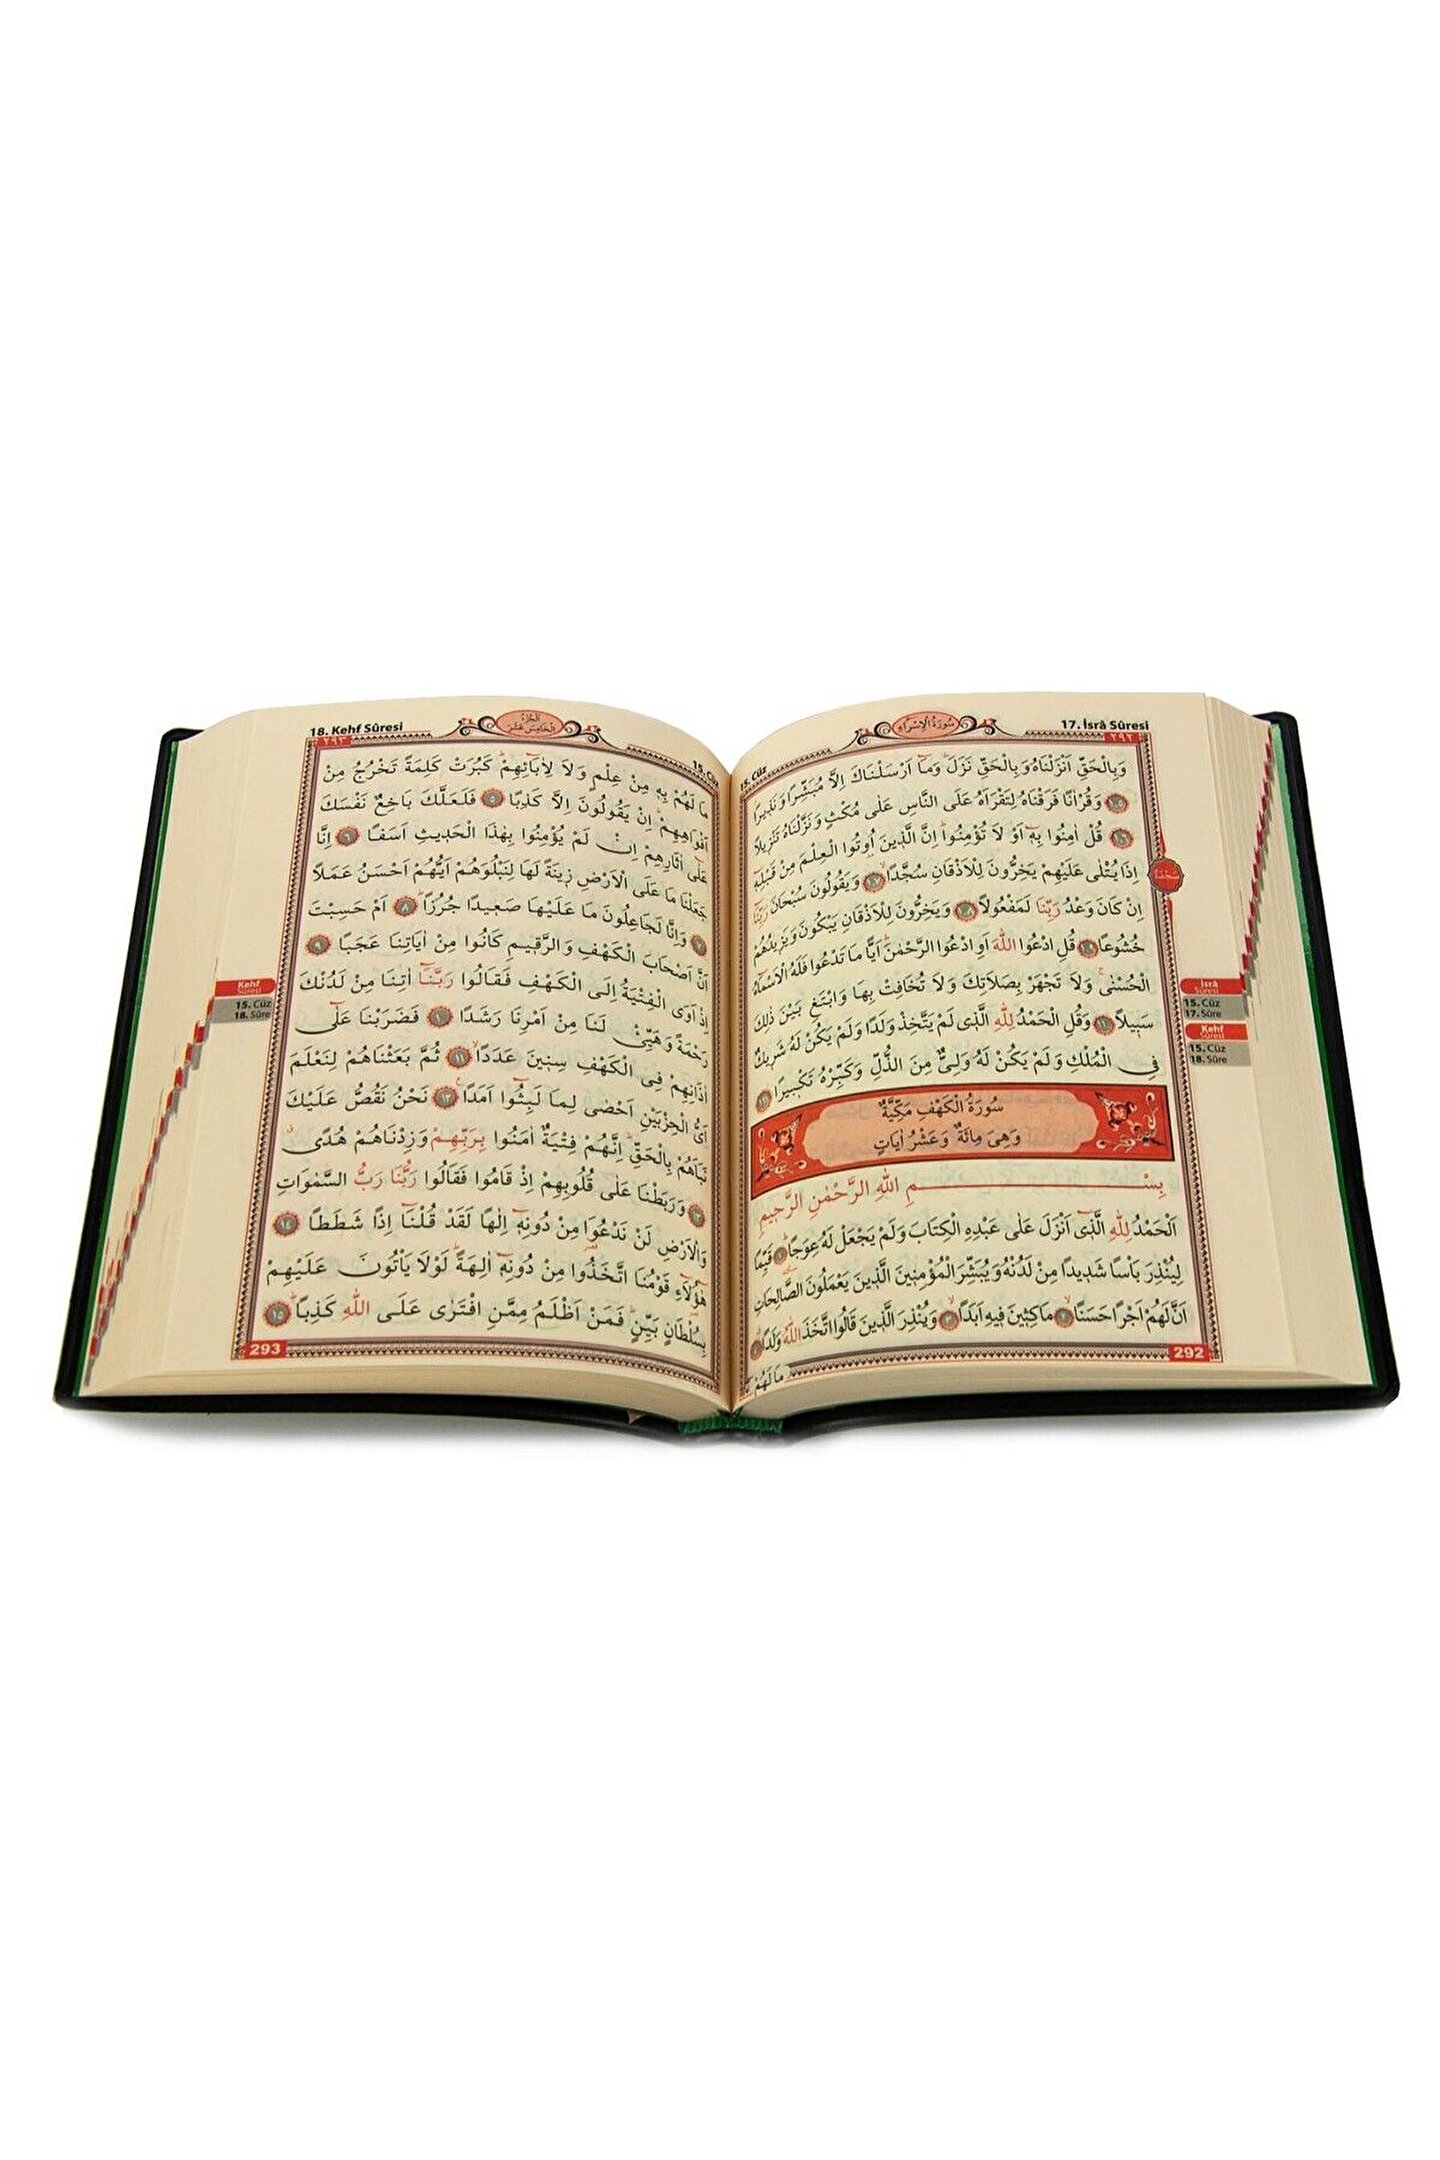 17. İsrâ Sûresi
سُورَةُ الْاِسْرَاءِ
15. Cüz
٢٩٢
وَبِالْحَقِّ اَنْزَلْنَاهُ وَبِالْحَقِّ نَزَلَ وَمَٓا اَرْسَلْنَاكَ اِلَّا مُبَشِّرًا وَنَذ۪يرًا
﴿١٠٥﴾ وَقُرْاٰنًا فَرَقْنَاهُ لِتَقْرَاَهُ عَلَى النَّاسِ عَلٰى مُكْثٍ وَنَزَّلْنَاهُ تَنْز۪يلًا
﴿١٠٦﴾ قُلْ اٰمِنُوا بِه۪ٓ اَوْ لَا تُؤْمِنُوا اِنَّ الَّذ۪ينَ اُو۫تُوا الْعِلْمَ مِنْ قَبْلِه۪ٓ
اِذَا يُتْلٰى عَلَيْهِمْ يَخِرُّونَ لِلْاَذْقَانِ سُجَّدًا ﴿١٠٧﴾ وَيَقُولُونَ سُبْحَانَ رَبِّنَٓا
اِنْ كَانَ وَعْدُ رَبِّنَا لَمَفْعُولًا ﴿١٠٨﴾ وَيَخِرُّونَ لِلْاَذْقَانِ يَبْكُونَ وَيَز۪يدُهُمْ
خُشُوعًا ﴿١٠٩﴾ قُلِ ادْعُوا اللّٰهَ اَوِ ادْعُوا الرَّحْمٰنَ اَيًّا مَا تَدْعُوا فَلَهُ الْاَسْمَٓاءُ
الْحُسْنٰى وَلَا تَجْهَرْ بِصَلَاتِكَ وَلَا تُخَافِتْ بِهَا وَابْتَغِ بَيْنَ ذٰلِكَ
سَب۪يلًا ﴿١١٠﴾ وَقُلِ الْحَمْدُ لِلّٰهِ الَّذ۪ي لَمْ يَتَّخِذْ وَلَدًا وَلَمْ يَكُنْ لَهُ شَر۪يكٌ
فِي الْمُلْكِ وَلَمْ يَكُنْ لَهُ وَلِيٌّ مِنَ الذُّلِّ وَكَبِّرْهُ تَكْب۪يرًا ﴿١١١﴾
سُورَةُ الْكَهْفِ مَكِّيَّةٌ
وَهِيَ مِائَةٌ وَعَشْرُ اٰيَاتٍ
بِسْمِ اللّٰهِ الرَّحْمٰنِ الرَّح۪يمِ
اَلْحَمْدُ لِلّٰهِ الَّذ۪ٓي اَنْزَلَ عَلٰى عَبْدِهِ الْكِتَابَ وَلَمْ يَجْعَلْ لَهُ عِوَجًا ﴿١﴾ قَيِّمًا
لِيُنْذِرَ بَاْسًا شَد۪يدًا مِنْ لَدُنْهُ وَيُبَشِّرَ الْمُؤْمِن۪ينَ الَّذ۪ينَ يَعْمَلُونَ الصَّالِحَاتِ
اَنَّ لَهُمْ اَجْرًا حَسَنًا ﴿٢﴾ مَاكِث۪ينَ ف۪يهِ اَبَدًا ﴿٣﴾ وَيُنْذِرَ الَّذ۪ينَ قَالُوا اتَّخَذَ اللّٰهُ وَلَدًا ﴿٤﴾
292
مَا لَهُمْ
İsrâ
Sûresi
15. Cüz
17. Sûre
Kehf
Sûresi
15. Cüz
18. Sûre
18. Kehf Sûresi
اَلْجُزْءُ
الْخَامِسَ عَشَرَ
15. Cüz
٢٩٣
مَا لَهُمْ بِه۪ مِنْ عِلْمٍ وَلَا لِاٰبَٓائِهِمْ كَبُرَتْ كَلِمَةً تَخْرُجُ مِنْ
اَفْوَاهِهِمْ اِنْ يَقُولُونَ اِلَّا كَذِبًا ﴿٥﴾ فَلَعَلَّكَ بَاخِعٌ نَفْسَكَ
عَلٰٓى اٰثَارِهِمْ اِنْ لَمْ يُؤْمِنُوا بِهٰذَا الْحَد۪يثِ اَسَفًا ﴿٦﴾ اِنَّا
جَعَلْنَا مَا عَلَى الْاَرْضِ ز۪ينَةً لَهَا لِنَبْلُوَهُمْ اَيُّهُمْ اَحْسَنُ عَمَلًا
﴿٧﴾ وَاِنَّا لَجَاعِلُونَ مَا عَلَيْهَا صَع۪يدًا جُرُزًا ﴿٨﴾ اَمْ حَسِبْتَ
اَنَّ اَصْحَابَ الْكَهْفِ وَالرَّق۪يمِ كَانُوا مِنْ اٰيَاتِنَا عَجَبًا ﴿٩﴾
اِذْ اَوَى الْفِتْيَةُ اِلَى الْكَهْفِ فَقَالُوا رَبَّنَٓا اٰتِنَا مِنْ لَدُنْكَ
رَحْمَةً وَهَيِّئْ لَنَا مِنْ اَمْرِنَا رَشَدًا ﴿١٠﴾ فَضَرَبْنَا عَلٰٓى
اٰذَانِهِمْ فِي الْكَهْفِ سِن۪ينَ عَدَدًا ﴿١١﴾ ثُمَّ بَعَثْنَاهُمْ لِنَعْلَمَ
اَيُّ الْحِزْبَيْنِ اَحْصٰى لِمَا لَبِثُٓوا اَمَدًا ﴿١٢﴾ نَحْنُ نَقُصُّ عَلَيْكَ
نَبَاَهُمْ بِالْحَقِّ اِنَّهُمْ فِتْيَةٌ اٰمَنُوا بِرَبِّهِمْ وَزِدْنَاهُمْ هُدًى
﴿١٣﴾ وَرَبَطْنَا عَلٰى قُلُوبِهِمْ اِذْ قَامُوا فَقَالُوا رَبُّنَا رَبُّ السَّمٰوَاتِ
وَالْاَرْضِ لَنْ نَدْعُوَا مِنْ دُونِه۪ٓ اِلٰهًا لَقَدْ قُلْنَٓا اِذًا شَطَطًا ﴿١٤﴾
هٰٓؤُ۬لَٓاءِ قَوْمُنَا اتَّخَذُوا مِنْ دُونِه۪ٓ اٰلِهَةً لَوْلَا يَاْتُونَ عَلَيْهِمْ
بِسُلْطَانٍ بَيِّنٍ فَمَنْ اَظْلَمُ مِمَّنِ افْتَرٰى عَلَى اللّٰهِ كَذِبًا ﴿١٥﴾
293
Kehf
Sûresi
15. Cüz
18. Sûre